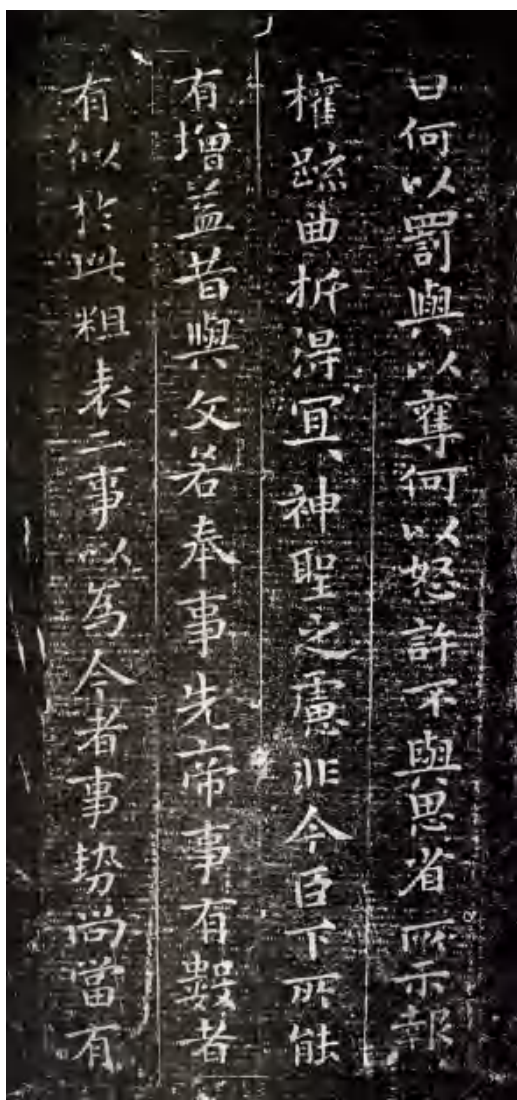 曰何以罰與以奪何以怒許不與思省所示報
權疏曲折得宜神聖之慮非今臣下所能
有增益昔與文若奉事先帝事有數者
有似於此粗表二事以為今者事勢尚當有